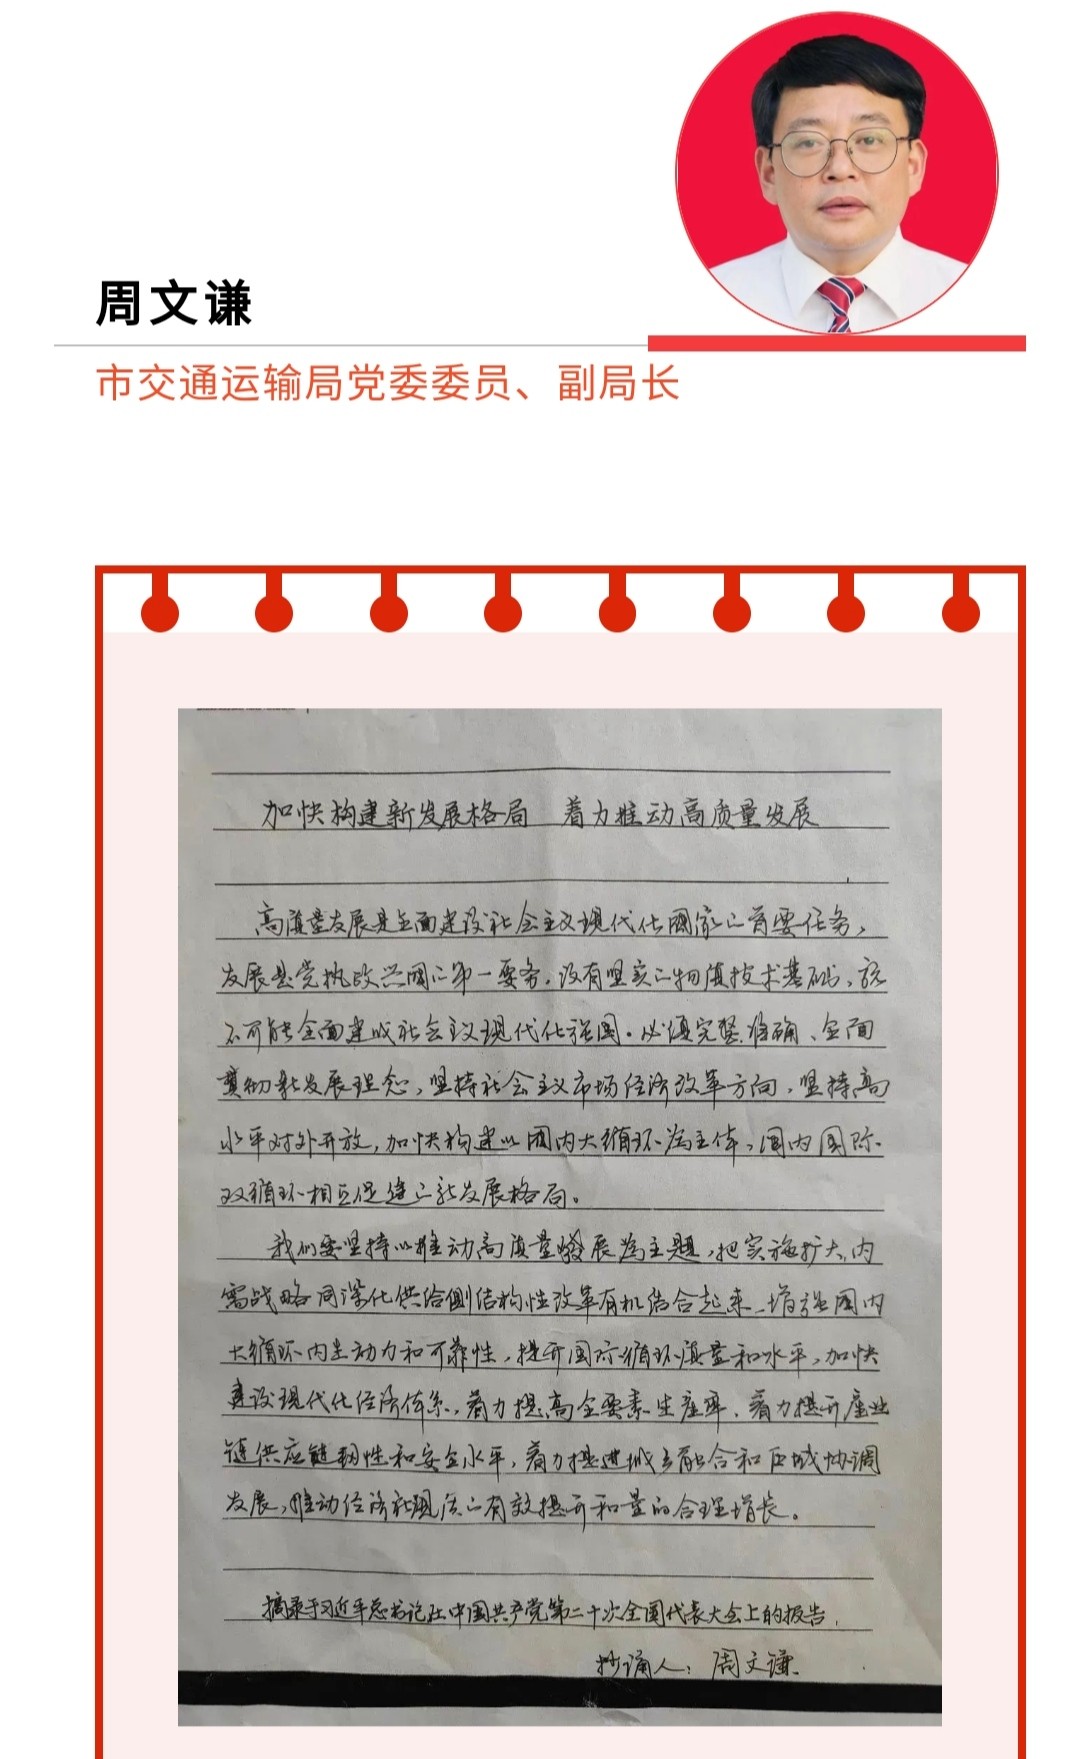 周文谦
市交通运输局党委委员、副局长
加快构建新发展格局 着力推动高质量发展
高质量发展是全面建设社会主义现代化国家的首要任务，
发展是党执政兴国的第一要务。没有坚实的物质技术基础，就
不可能全面建成社会主义现代化强国。必须完整、准确、全面
贯彻新发展理念，坚持社会主义市场经济改革方向，坚持高
水平对外开放，加快构建以国内大循环为主体，国内国际
双循环相互促进的新发展格局。
我们要坚持以推动高质量發展为主题，把实施扩大内
需战略同深化供给侧结构性改革有机结合起来，增强国内
大循环内生动力和可靠性，提升国际循环质量和水平，加快
建设现代化经济体系，着力提高全要素生产率，着力提升产业
链供应链韧性和安全水平，着力推进城乡融合和区域协调
发展，推动经济实现质的有效提升和量的合理增长。
摘录于习近平总书记在中国共产党第二十次全国代表大会上的报告.
抄诵人：周文谦